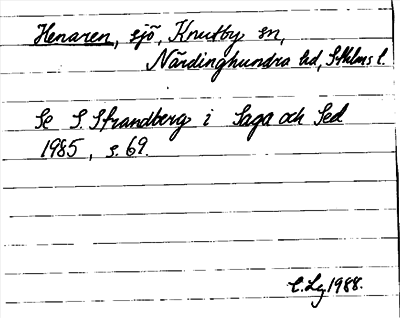 Henaren, sjö, Knutby sn,
Närdinghundra hd, Sthlms l.
Se S. Strandberg i Saga och Sed
1985, s. 69.
E. Lg 1988.